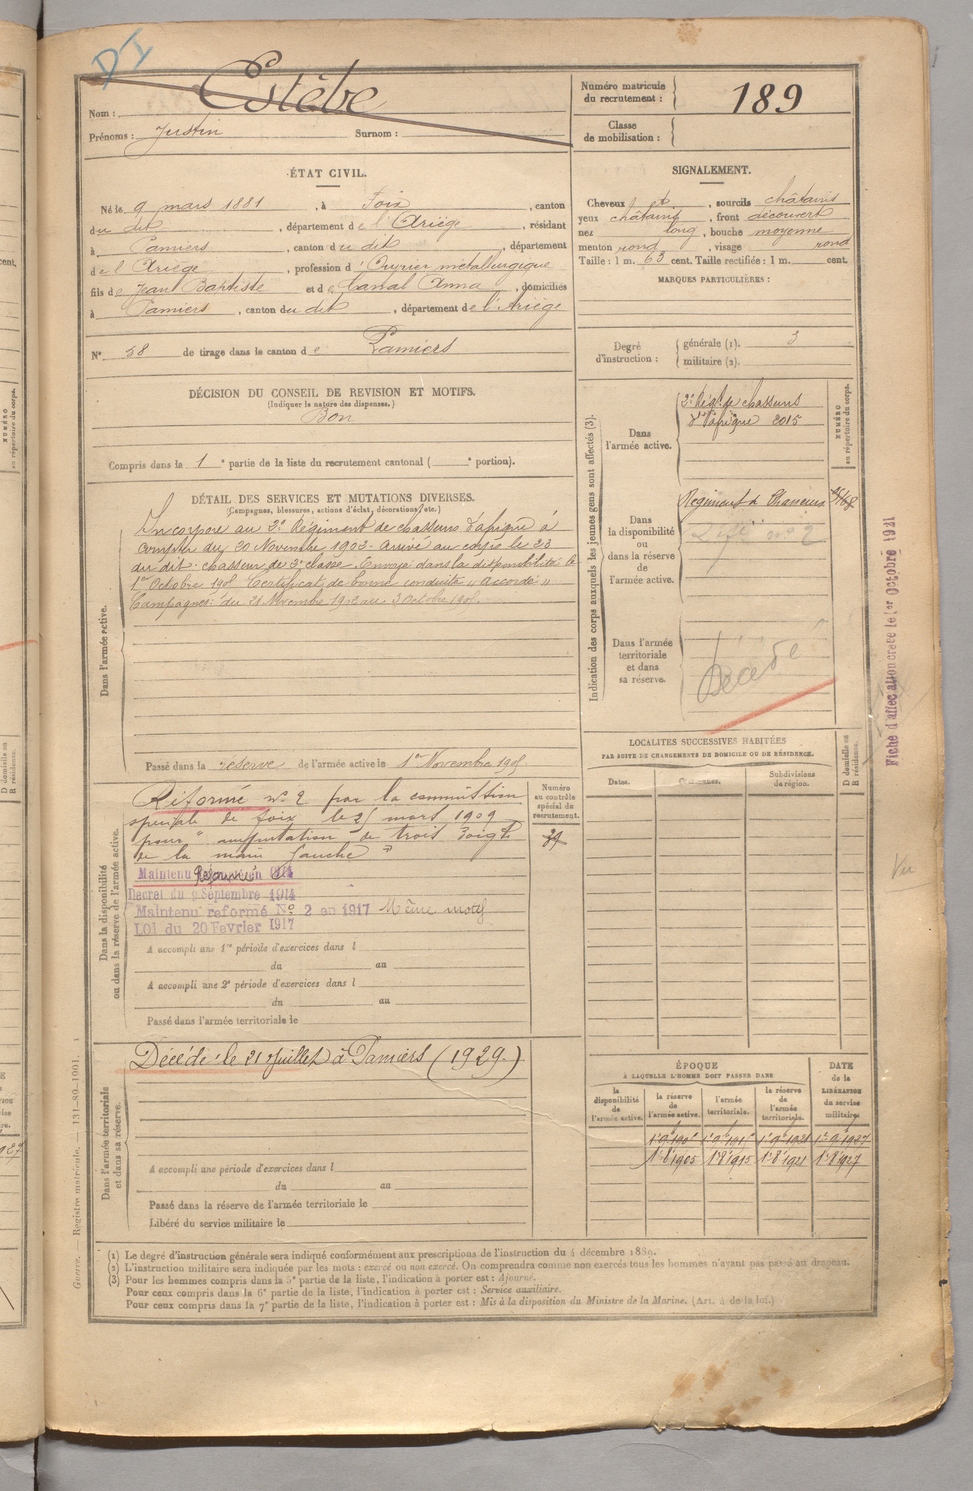 DI
Nom : Estèbe
Prénoms : Justin Surnom :
Numéro matricule du recrutement : 189
Classe de mobilisation :
ÉTAT CIVIL.
Né le 9 mars 1881, à Foix, canton
du dit, département de l'Ariège, résidant
à Pamiers, canton du dit, département
de l'Ariège, profession d'Ouvrier metallurgique
fils de Jean Baptiste et de Canal Anna, domiciliés
à Pamiers, canton du dit, département de l'Ariège
N° 58 de tirage dans le canton de Pamiers
SIGNALEMENT.
Cheveux, sourcils châtains
yeux châtains, front découvert
nez long, bouche moyenne
menton rond, visage rond
Taille : 1 m. 63 cent. Taille rectifiée : 1 m. cent.
MARQUES PARTICULIÈRES :
Degré d'instruction : générale (1). 3
militaire (2).
DÉCISION DU CONSEIL DE REVISION ET MOTIFS.
(Indiquer la nature des dispenses.)
Bon
Compris dans la 1e partie de la liste du recrutement cantonal ( e portion).
DÉTAIL DES SERVICES ET MUTATIONS DIVERSES.
(Campagnes, blessures, actions d'éclat, décorations, etc.)
Dans l'armée active.
Incorporé au 2e Régiment de chasseurs d'afrique à
compter du 20 Novembre 1902. Arrivé au corps le 23
du dit. chasseur de 2e classe. Envoyé dans la disponibilité le
1er Octobre 1905. Certificat de bonne conduite "accordé"
Campagnes: du 21 Novembre 1902 au 3 Octobre 1905.
Passé dans la réserve de l'armée active le 1er Novembre 1905
Indication des corps auxquels les jeunes gens sont affectés (3).
NUMÉRO au répertoire du corps.
Dans l'armée active.
2e Régt de chasseurs
d'afrique 2015
Dans la disponibilité ou dans la réserve de l'armée active.
Régiment de Chasseurs
Réfé n° 2
Dans l'armée territoriale et dans sa réserve.
Décédé
Fiche d'affectation créée le 1er Octobre 1921
Vu
Dans la disponibilité ou dans la réserve de l'armée active.
Numéro au contrôle spécial du recrutement.
Réformé n° 2 par la commission
spéciale de Foix le 25 mars 1909
pour "amputation de trois doigts
de la main Gauche"
Maintenu Réformé en 1914
Décret du 9 Septembre 1914
Maintenu réformé N° 2 en 1917 Même motif
LOI du 20 Février 1917
A accompli une 1re période d'exercices dans l
du au
A accompli une 2e période d'exercices dans l
du au
Passé dans l'armée territoriale le
LOCALITÉS SUCCESSIVES HABITÉES
PAR SUITE DE CHANGEMENTS DE DOMICILE OU DE RÉSIDENCE.
Dates. Communes. Subdivisions de région. D domicile ou R résidence.
Dans l'armée territoriale et dans sa réserve.
Décédé le 21 Juillet à Pamiers (1929.)
A accompli une période d'exercices dans l
du au
Passé dans la réserve de l'armée territoriale le
Libéré du service militaire le
ÉPOQUE
À LAQUELLE L'HOMME DOIT PASSER DANS
la disponibilité de l'armée active. la réserve de l'armée active. l'armée territoriale. la réserve de l'armée territoriale.
DATE de la LIBÉRATION du service militaire
1er 8 1905 1er 8 1915 1er 8 1921 1er 8 1927
(1) Le degré d'instruction générale sera indiqué conformément aux prescriptions de l'instruction du 4 décembre 1889.
(2) L'instruction militaire sera indiquée par les mots : exercé ou non exercé. On comprendra comme non exercés tous les hommes n'ayant pas passé au drapeau.
(3) Pour les hommes compris dans la 5e partie de la liste, l'indication à porter est : Ajourné.
Pour ceux compris dans la 6e partie de la liste, l'indication à porter est : Service auxiliaire.
Pour ceux compris dans la 7e partie de la liste, l'indication à porter est : Mis à la disposition du Ministre de la Marine. (Art. 4 de la loi.)
Guerre. — Registre matricule. — 131-89-1901.